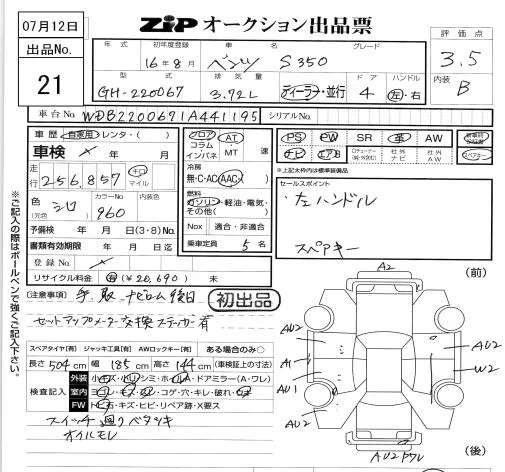 07月12日
出品No.
21
ZIP オークション出品票
評価点
3.5
内装
B
年式 初年度登録 車名 グレード
16年8月 ベンツ S350
型式 排気量 ドア ハンドル
GH-220067 3.72L ディーラー・並行 4 左・右
車台No. WDB2200671A441195 シリアルNo.
車歴 自家用 レンタ・( )
フロア コラム インパネ AT ・MT 速
PS PW SR 革 AW
車検 年 月
ナビ エアB 社外ナビ 社外AW スペアキー
※上記太枠内は標準装備品
走行 256,857 キロ マイル
冷房 無・C・AC(AAC)
燃料 ガソリン・軽油・電気・その他( )
セールスポイント
・左ハンドル
スペアキー
色 (元色) シロ カラーNo. 960 内装色
予備検 年 月 日(3・8)No.
Nox 適合・非適合
書類有効期限 年 月 日迄
乗車定員 5名
登録No.
リサイクル料金 (¥20,690) 未
初出品
[注意事項] 手、取、ナビロム後日
セットアップメーター交換ステッカー有
スペアタイヤ[有] ジャッキ工具[有] AWロックキー[有] ある場合のみ○
長さ 504cm 幅 185cm 高さ 144cm (車検証上の寸法)
検査記入
外装 小キズ・小凹・シミ・ホイルA・ドアミラー(A・ワレ)
室内 ヨゴレ・キズ・スレ・コゲ・穴・キレ・破れ
FW トビ石・キズ・ヒビ・リペア跡・X要ス
スイッチ廻りベタツキ
オイルモレ
※ご記入の際はボールペンで強くご記入下さい。
(前)
A2
AU2 AU2
A1 W2
AU1
AU2
AU2ワレ
(後)